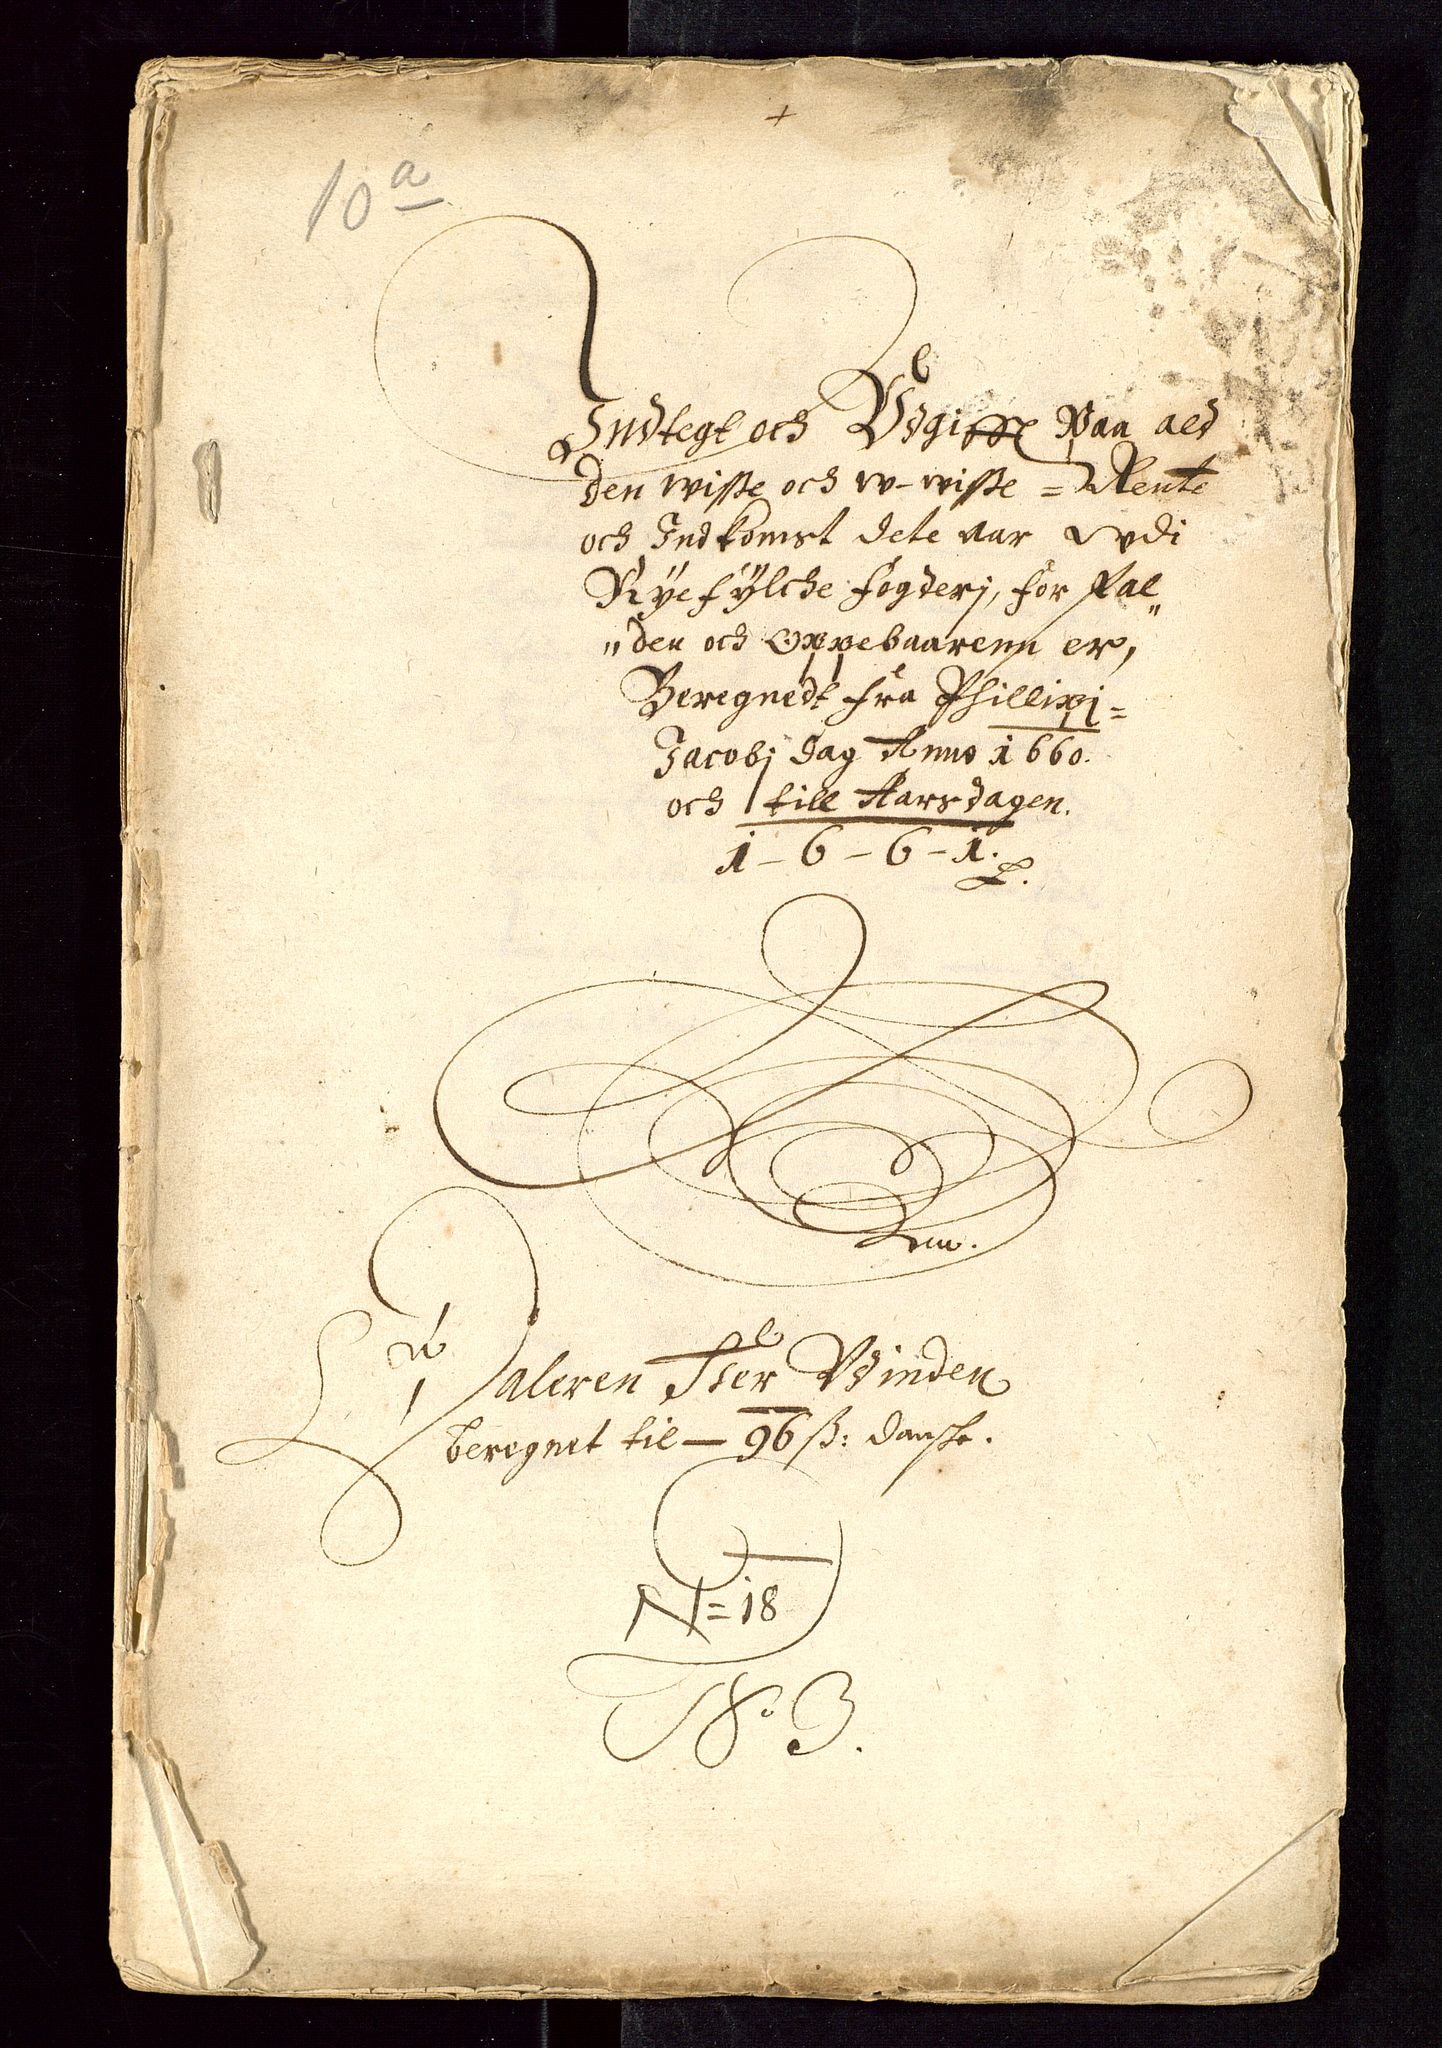 10 a
Indtegt och Vdgifft Paa ald
den wisse och w-wisse = Rente
och Indkomst dete aar udi
Ryefylche fogderj, for fal„
„den och oppebaarenn er,
Beregnedt fra Phillipi=
Jacobj dag Anno 1660.
och till Aarsdagen.
1-6-6-1.
Daleren Her Vdinden
beregnet til — 96 ß: danske.
N=18
No. 3.